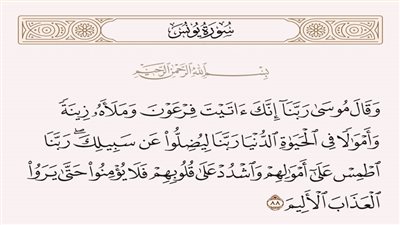 سُورَةُ يُونُسَ
بِسْمِ ٱللَّهِ ٱلرَّحْمَٰنِ ٱلرَّحِيمِ
وَقَالَ مُوسَىٰ رَبَّنَآ إِنَّكَ ءَاتَيْتَ فِرْعَوْنَ وَمَلَأَهُۥ زِينَةً
وَأَمْوَٰلًا فِي ٱلْحَيَوٰةِ ٱلدُّنْيَا رَبَّنَا لِيُضِلُّوا۟ عَن سَبِيلِكَ ۖ رَبَّنَا
ٱطْمِسْ عَلَىٰٓ أَمْوَٰلِهِمْ وَٱشْدُدْ عَلَىٰ قُلُوبِهِمْ فَلَا يُؤْمِنُوا۟ حَتَّىٰ يَرَوُا۟
ٱلْعَذَابَ ٱلْأَلِيمَ ٨٨